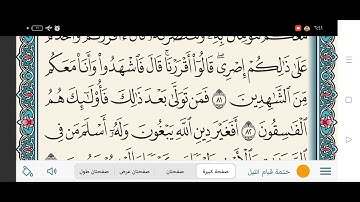 ٦:٤١
عَلَىٰ ذَٰلِكُمْ إِصْرِي قَالُوٓا۟ أَقْرَرْنَا قَالَ فَٱشْهَدُوا۟ وَأَنَا۠ مَعَكُم
مِّنَ ٱلشَّٰهِدِينَ ٨١ فَمَن تَوَلَّىٰ بَعْدَ ذَٰلِكَ فَأُو۟لَٰٓئِكَ هُمُ
ٱلْفَٰسِقُونَ ٨٢ أَفَغَيْرَ دِينِ ٱللَّهِ يَبْغُونَ وَلَهُۥٓ أَسْلَمَ مَن فِى
ختمة قيام الليل صفحة كبيرة صفحتان صفحتان عرض صفحتان طول